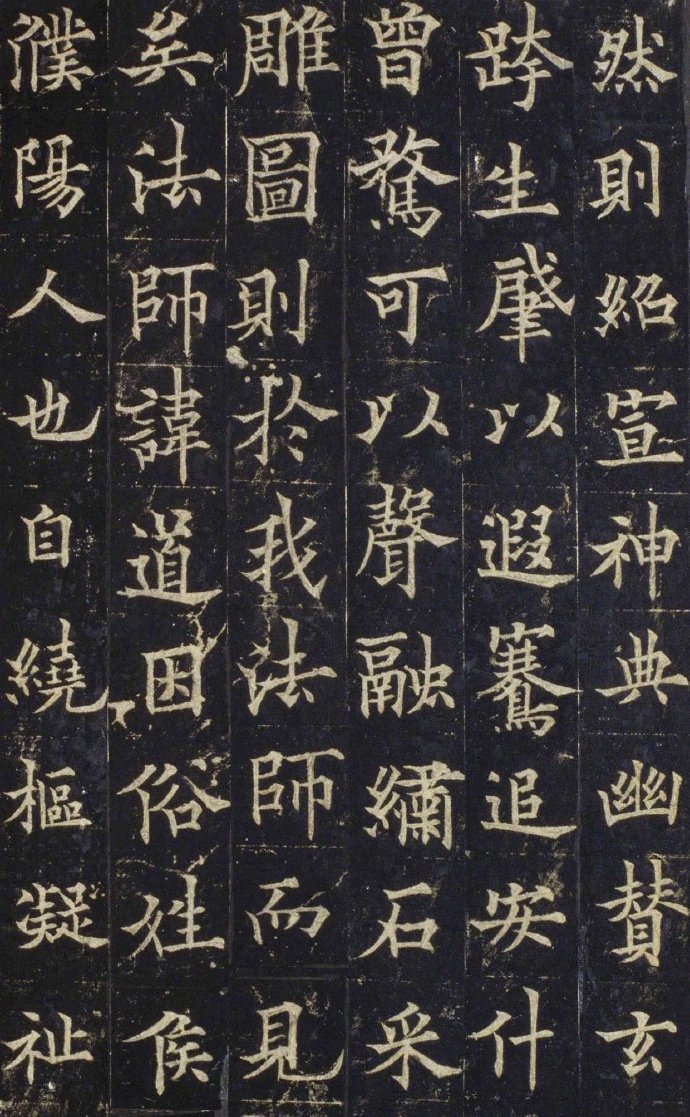 然則紹宣神典幽賛玄
跨生肇以遐騫追安什
曾驁可以聲融繡石采
雕圖則於我法師而見
矣法師諱道因俗姓侯
濮陽人也自繞樞凝祉